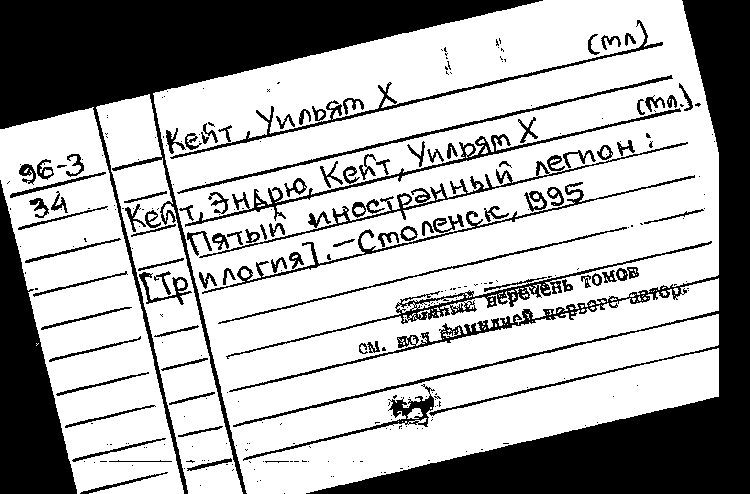 Кейт, Уильям Х (мл)
96-3
34
Кейт, Эндрю, Кейт, Уильям Х (мл.).
Пятый иностранный легион:
[Трилогия]. - Смоленск, 1995
Полный перечень томов
см. под фамилией первого автора.